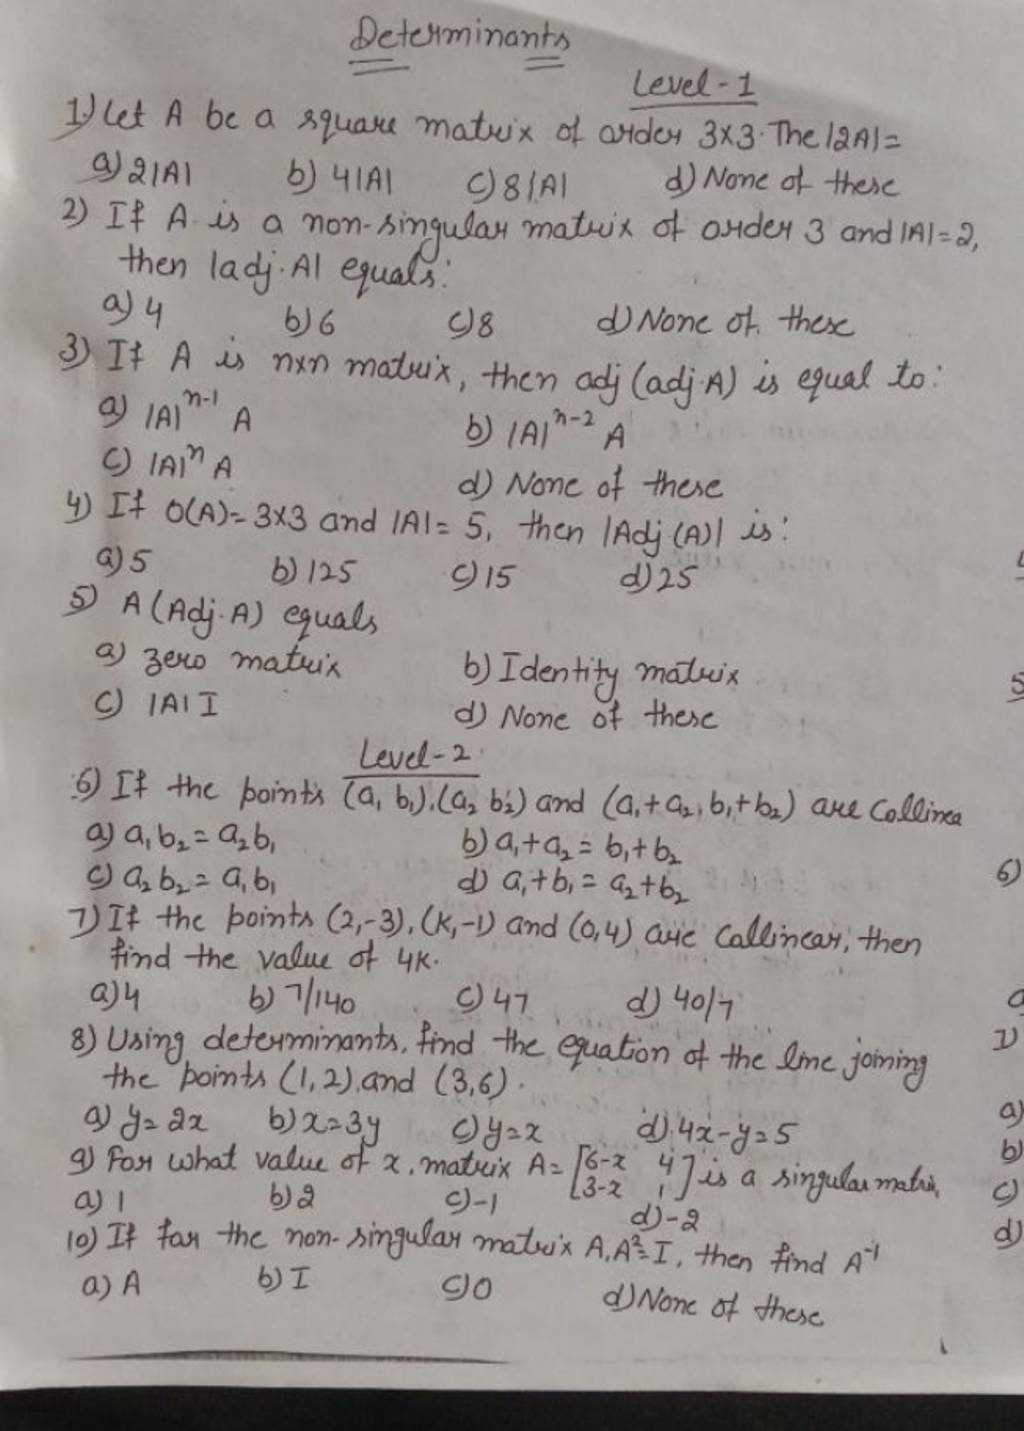 Determinants
Level-1
1.) Let A be a square matrix of order 3x3. The |2A|=
a) 2|A| b) 4|A| c) 8|A| d) None of these
2) If A is a non-singular matrix of order 3 and |A|=2,
then |adj.A| equals:
a) 4 b) 6 c) 8 d) None of these
3) If A is nxn matrix, then adj (adj.A) is equal to:
a) |A|ⁿ⁻¹ A b) |A|ⁿ⁻² A
c) |A|ⁿ A d) None of these
4) If O(A)= 3x3 and |A|= 5, then |Adj.(A)| is:
a) 5 b) 125 c) 15 d) 25
5) A (Adj.A) equals
a) zero matrix b) Identity matrix
c) |A| I d) None of these
Level-2
6) If the points (a₁ b₁),(a₂ b₂) and (a₁+a₂, b₁+b₂) are Collinea
a) a₁b₂ = a₂b₁ b) a₁+a₂ = b₁+b₂
c) a₂b₂ = a₁b₁ d) a₁+b₁ = a₂+b₂
7) If the points (2,-3), (K,-1) and (0,4) are Collinear, then
find the value of 4K.
a) 4 b) 7/140 c) 47 d) 40/7
8) Using determinants, find the equation of the line joining
the points (1,2) and (3,6).
a) y= 2x b) x=3y c) y=x d) 4x-y=5
9) For what value of x, matrix A= [6-x 4
3-x 1] is a singular matri
a) 1 b) 2 c) -1 d) -2
10) If for the non-singular matrix A, A²=I, then find A⁻¹
a) A b) I c) 0 d) None of these
5
6)
a)
b)
c)
d)